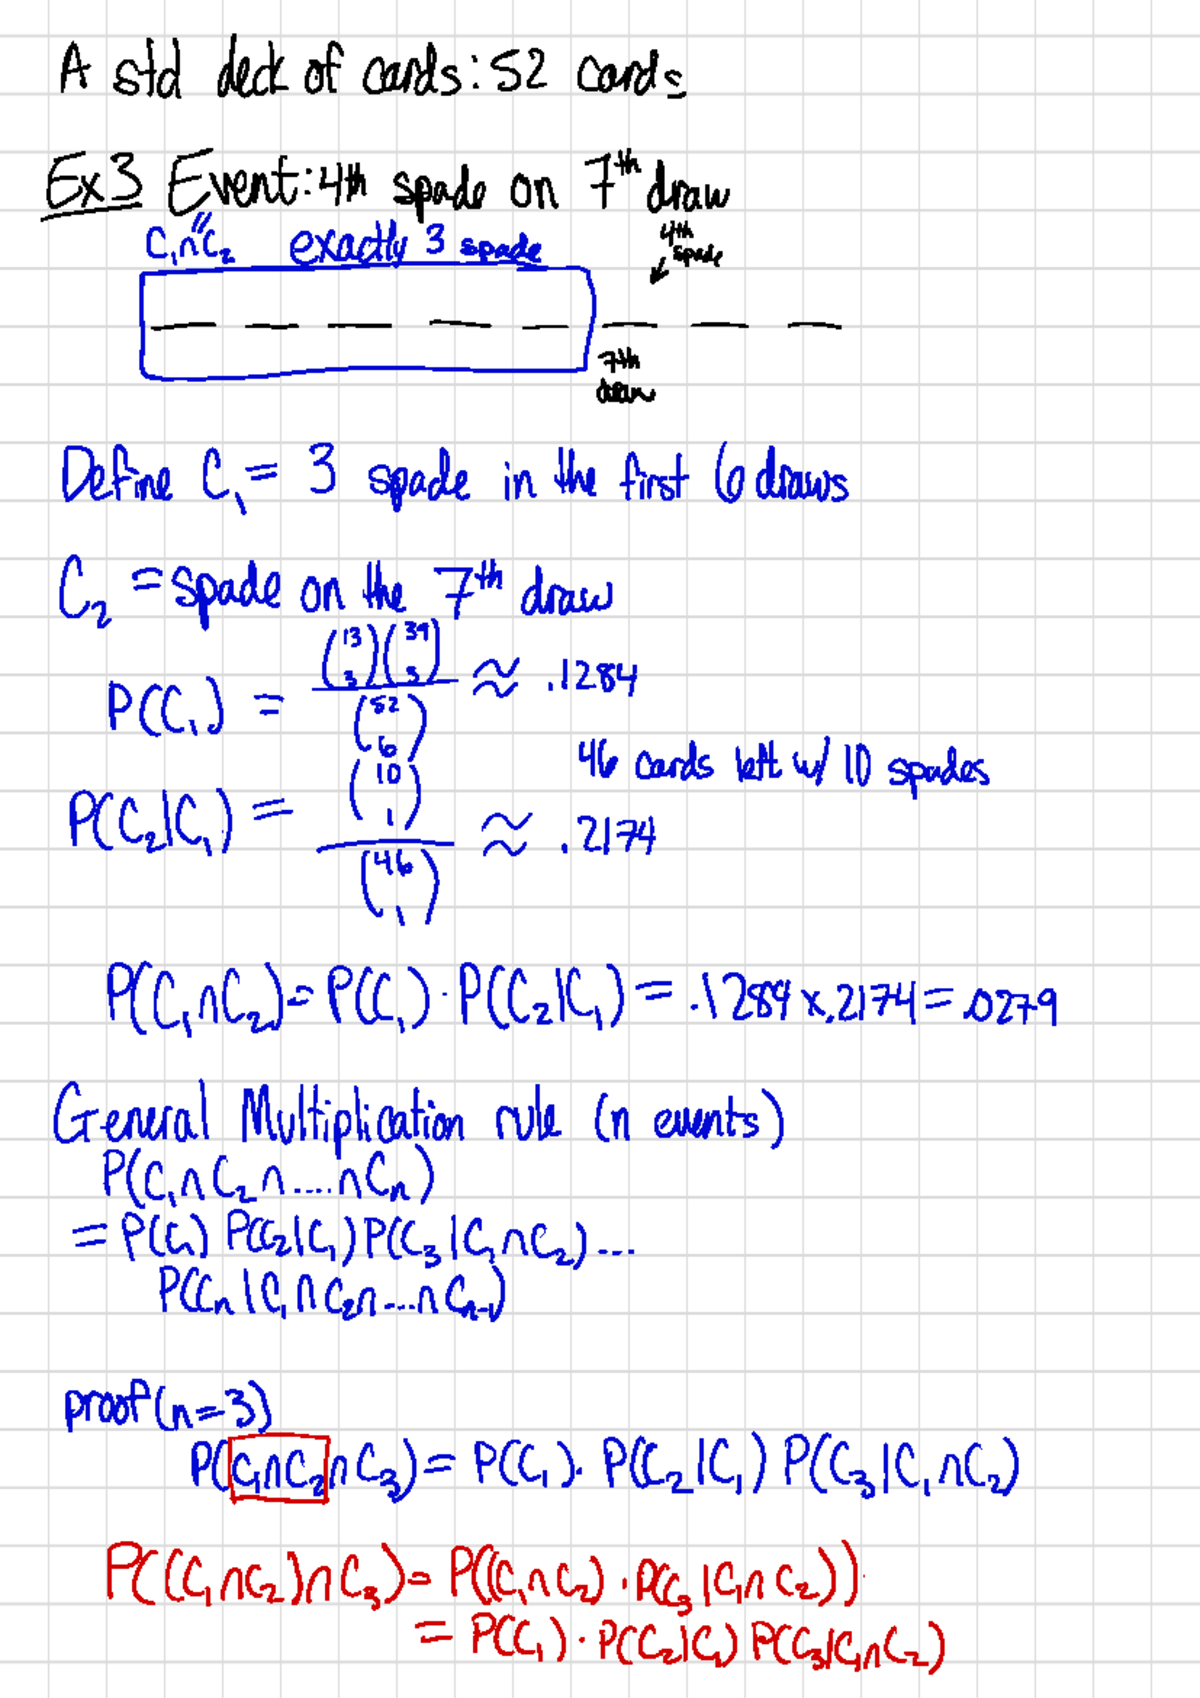 A std deck of cards: 52 cards
Ex3 Event: 4th spade on 7th draw
C₁∩C₂ exactly 3 spade
4th spade
7th draw
Define C₁ = 3 spade in the first 6 draws
C₂ = spade on the 7th draw
P(C₁) = (13 3)(39 3) / (52 6) ≈ .1284
46 cards left w/ 10 spades
P(C₂|C₁) = (10 1) / (46 1) ≈ .2174
P(C₁∩C₂) = P(C₁) · P(C₂|C₁) = .1284 x .2174 = .0279
General Multiplication rule (n events)
P(C₁∩C₂∩....∩Cₙ)
= P(C₁) P(C₂|C₁) P(C₃|C₁∩C₂)...
P(Cₙ|C₁∩C₂∩...∩Cₙ₋₁)
proof (n=3)
P(C₁∩C₂∩C₃) = P(C₁). P(C₂|C₁) P(C₃|C₁∩C₂)
P((C₁∩C₂)∩C₃) = P((C₁∩C₂) · P(C₃|C₁∩C₂))
= P(C₁) · P(C₂|C₁) P(C₃|C₁∩C₂)